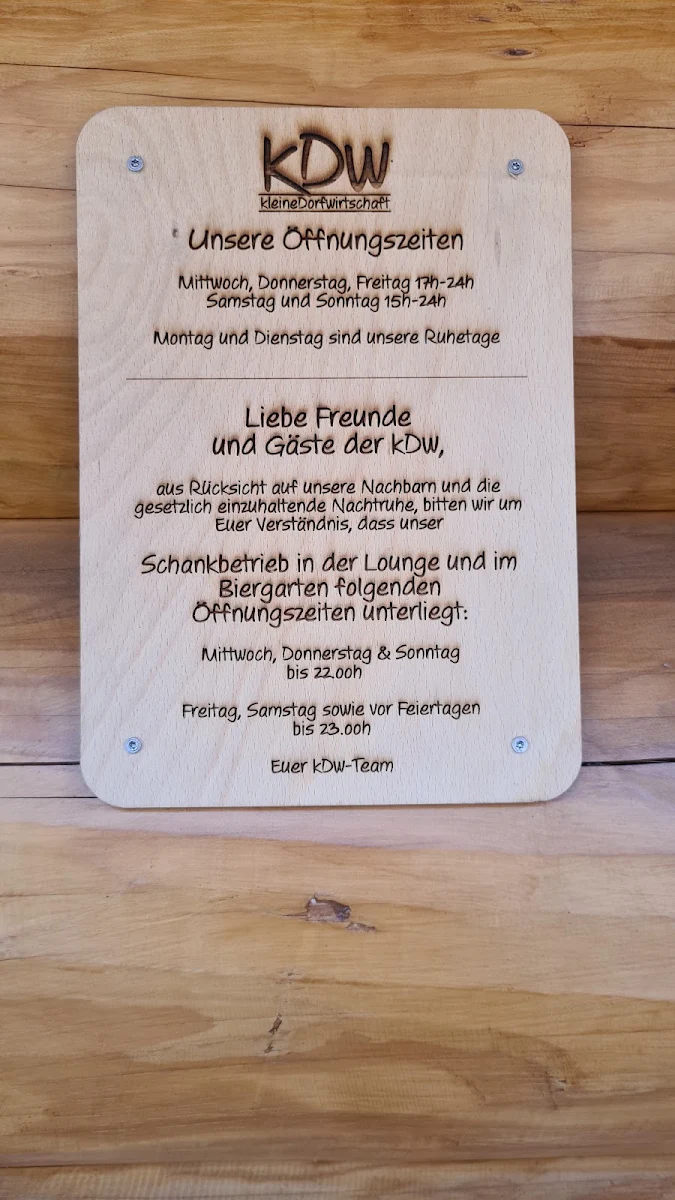 kDw
kleineDorfwirtschaft
Unsere Öffnungszeiten
Mittwoch, Donnerstag, Freitag 17h-24h
Samstag und Sonntag 15h-24h
Montag und Dienstag sind unsere Ruhetage
Liebe Freunde
und Gäste der kDw,
aus Rücksicht auf unsere Nachbarn und die
gesetzlich einzuhaltende Nachtruhe, bitten wir um
Euer Verständnis, dass unser
Schankbetrieb in der Lounge und im
Biergarten folgenden
Öffnungszeiten unterliegt:
Mittwoch, Donnerstag & Sonntag
bis 22.00h
Freitag, Samstag sowie vor Feiertagen
bis 23.00h
Euer kDw-Team